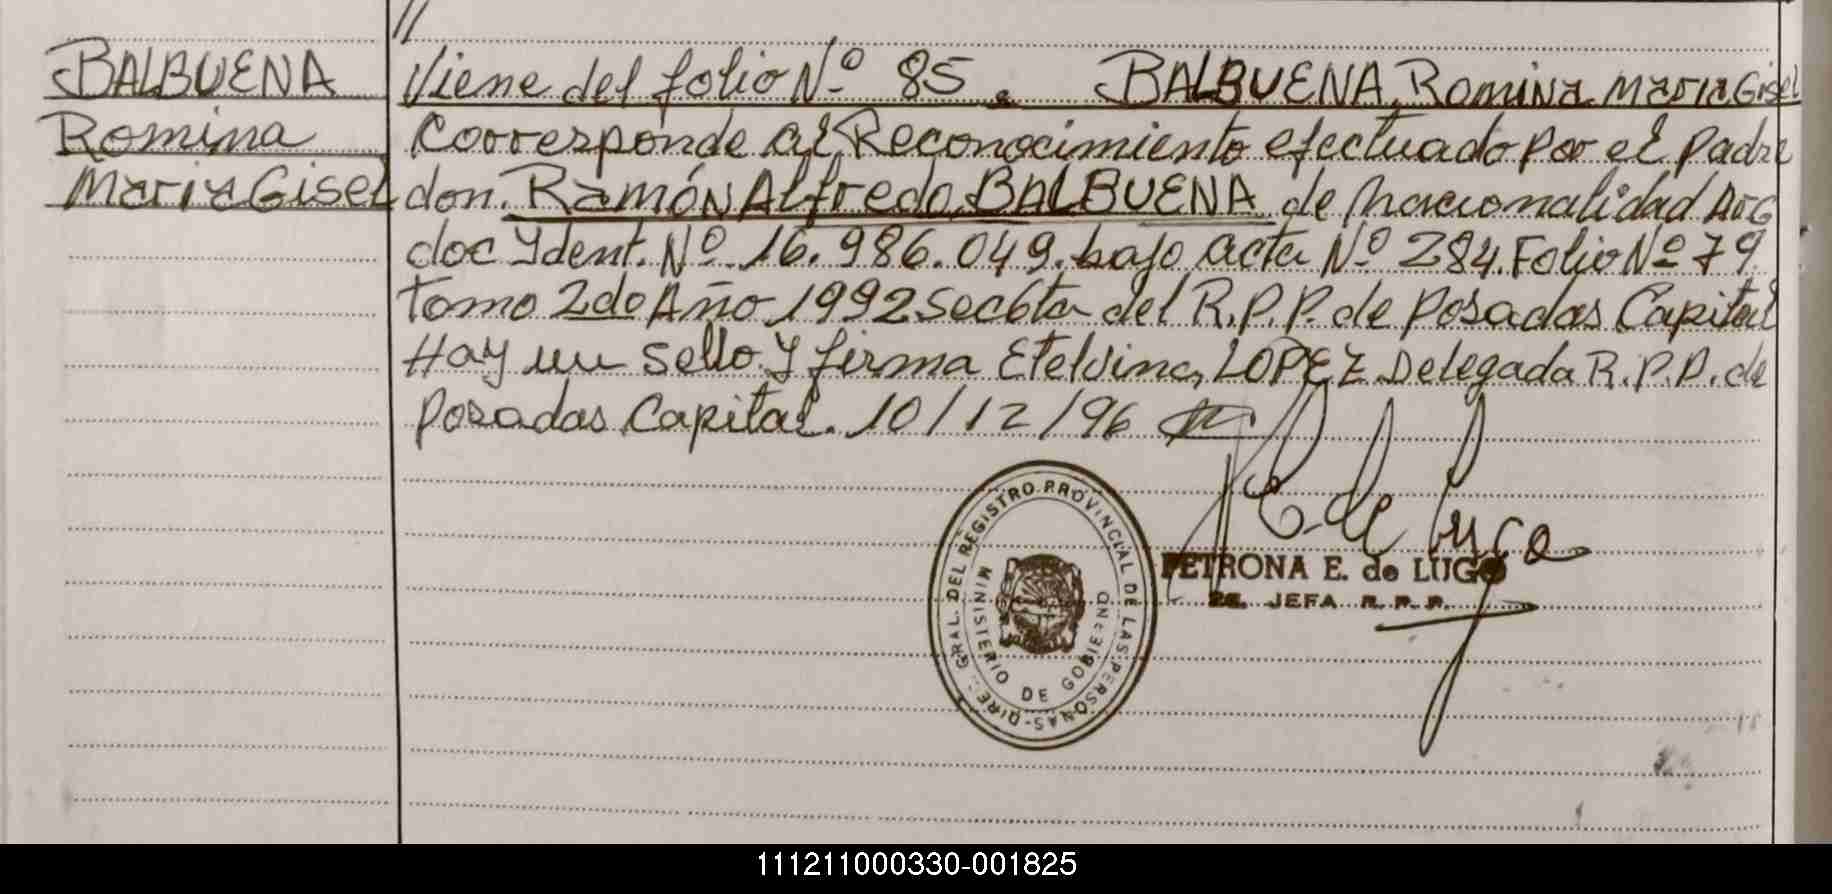 //
BALBUENA
Romina
Maria Gisel
Viene del folio Nº 85. BALBUENA, Romina Maria Gisel
Corresponde al Reconocimiento efectuado por el padre
don. Ramón Alfredo BALBUENA de nacionalidad Arg
doc Ydent. Nº 16.986.049. bajo acta Nº 284. Folio Nº 79
Tomo 2do Año 1992 Sec 6ta del R.P.P. de Posadas Capital
Hay un sello y firma Etelvina LOPEZ Delegada R.P.P. de
Posadas Capital. 10/12/96
E. de Lugo
PETRONA E. de LUGO
JEFA R.P.P.
DIREC. GRAL. DEL REGISTRO PROVINCIAL DE LAS PERSONAS-
MINISTERIO DE GOBIERNO
111211000330-001825